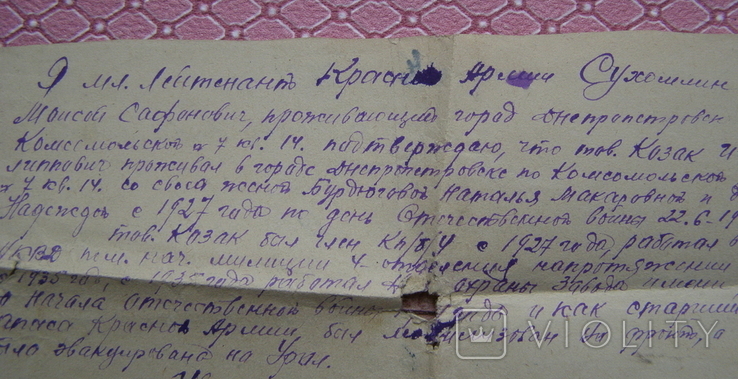 Я мл. Лейтенантъ Красн Армии Сухомлин
Моисей Сафонович, проживающий город Днепропетровск
Комсомольской № 7 кв. 14. подтверждаю, что тов. Козак И
липпович проживал в городе Днепропетровске по Комсомольской
№ 7 кв. 14. со своей женой Бурдюговой Наталья Макаровной и
Надежда с 1927 года по день Отечественной войны 22.6-19
тов. Козак был член Кп/б/У с 1927 года, работал в
НКВД пом. нач. милиции 4-отделения на протяжении
1935 года, с 1935 года работал охраны завода имени
начала Отечественной войны года и как старший
запаса Красной Армии был мобилизован на фронт, а
была эвакуирована на Урал.
VIOLITY